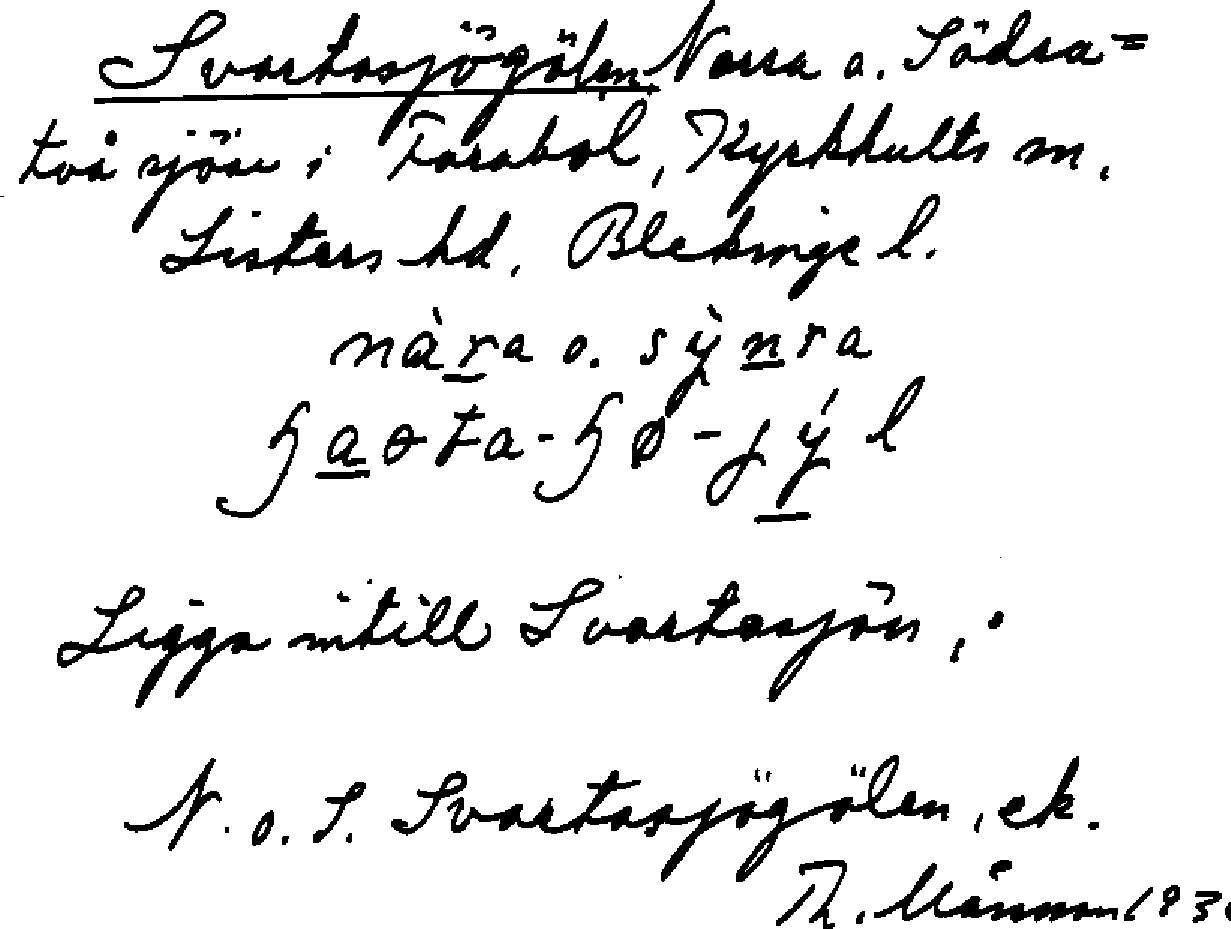 Svartasjögölen, Norra o. Södra =
två sjöar i Farabol, Kyrkhults sn,
Listers hd, Blekinge l.
nàra o. sỳnra
Ligga intill Svartasjön,
N. o. S. Svartasjögölen, ek.
Th. Månsson